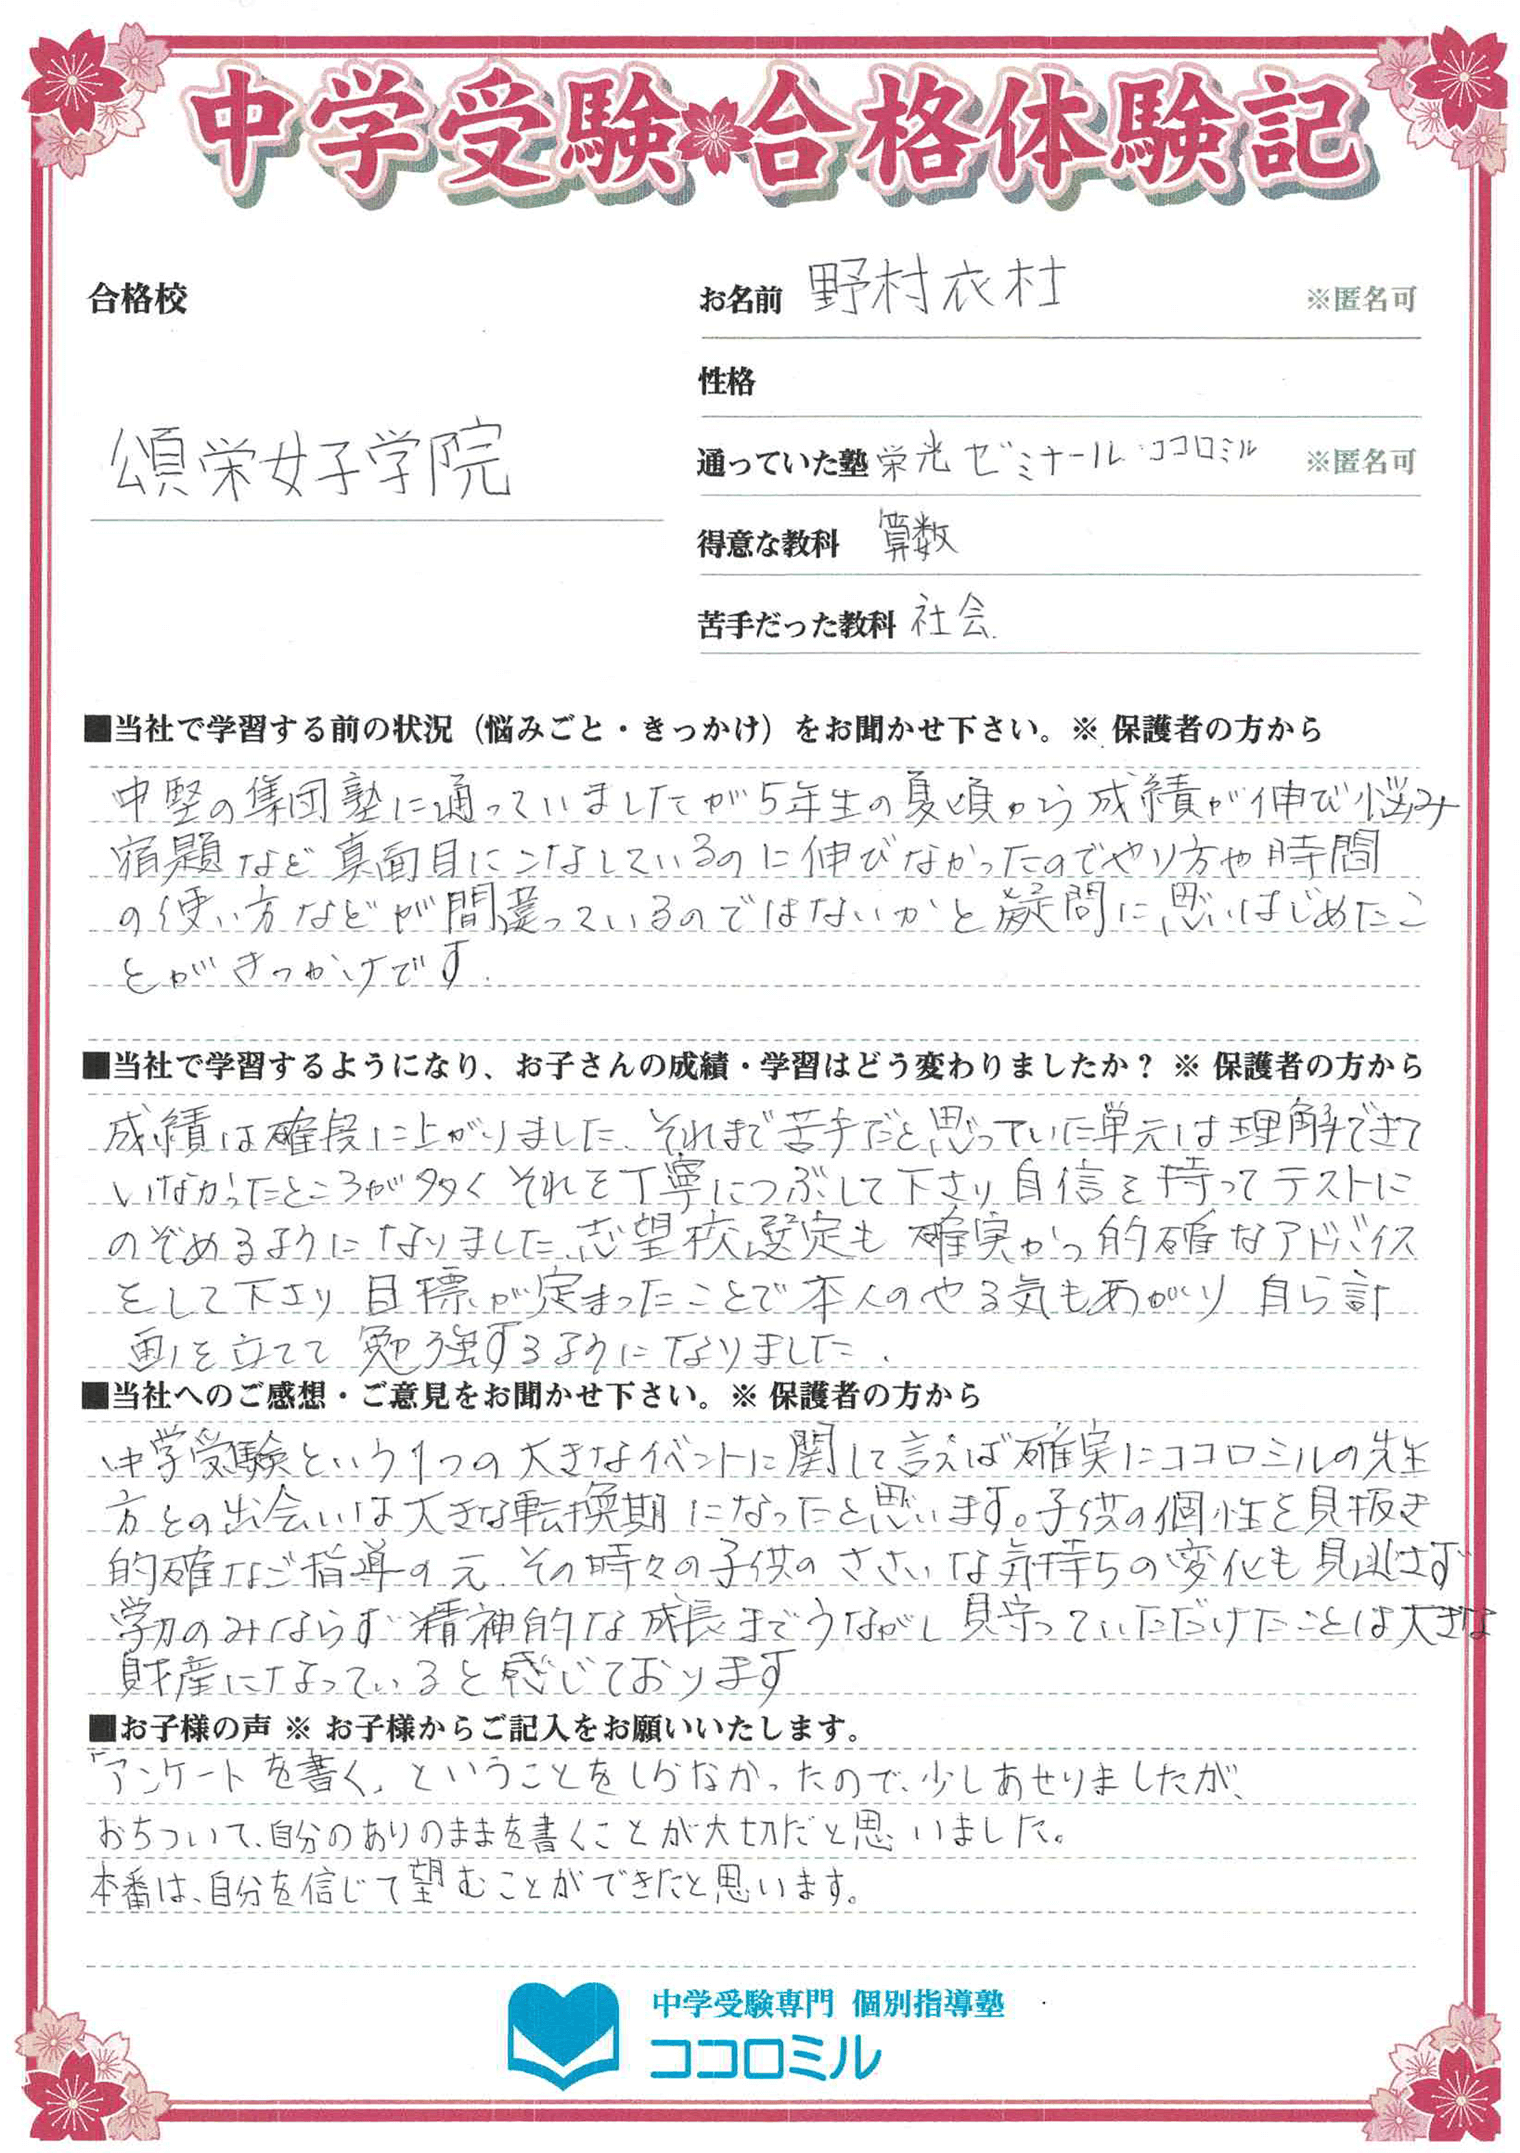 中学受験合格体験記
合格校
頌栄女子学院
お名前 野村衣 ※匿名可
性格
通っていた塾 栄光ゼミナール・ココロミル ※匿名可
得意な教科 算数
苦手だった教科 社会
■当社で学習する前の状況（悩みごと・きっかけ）をお聞かせ下さい。※ 保護者の方から
中堅の集団塾に通っていましたが5年生の夏頃から成績が伸び悩み
宿題など真面目にこなしているのに伸びなかったのでやり方や時間
の使い方などが間違っているのではないかと疑問に思いはじめたこ
とがきっかけです.
■当社で学習するようになり、お子さんの成績・学習はどう変わりましたか？ ※ 保護者の方から
成績は確段に上がりました、それまで苦手だと思っていた単元は理解できて
いなかったところが多く それを丁寧につぶして下さり 自信を持ってテストに
のぞめるようになりました、志望校選定も 確実かつ的確なアドバイス
をして下さり 目標が定まったことで本人のやる気もあがり 自ら計
画を立てて 勉強するようになりました.
■当社へのご感想・ご意見をお聞かせ下さい。※ 保護者の方から
中学受験という1つの大きなイベントに関して言えば確実にココロミルの先生
方との出会いは大きな転換期になったと思います。子供の個性を見抜き
的確なご指導の元、その時々の子供のささいな気持ちの変化も見逃さず
学力のみならず精神的な成長までうながし 見守っていただけたことは大きな
財産になっていると感じております
■お子様の声 ※ お子様からご記入をお願いいたします。
「アンケートを書く」ということをしらなかったので、少しあせりましたが、
おちついて、自分のありのままを書くことが大切だと思いました。
本番は、自分を信じて望むことができたと思います。
中学受験専門 個別指導塾
ココロミル